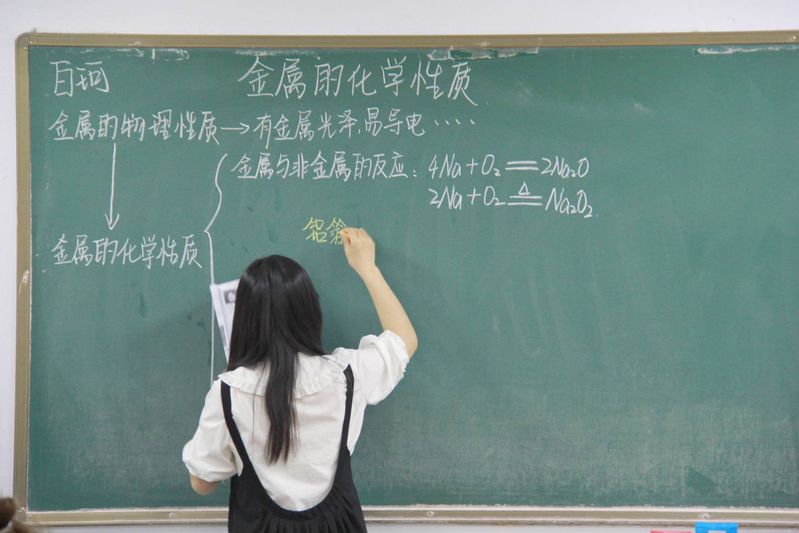 白珂
金属的化学性质
金属的物理性质→有金属光泽,易导电····
金属与非金属的反应:4Na+O₂══2Na₂O
2Na+O₂══△Na₂O₂.
铝箔
金属的化学性质